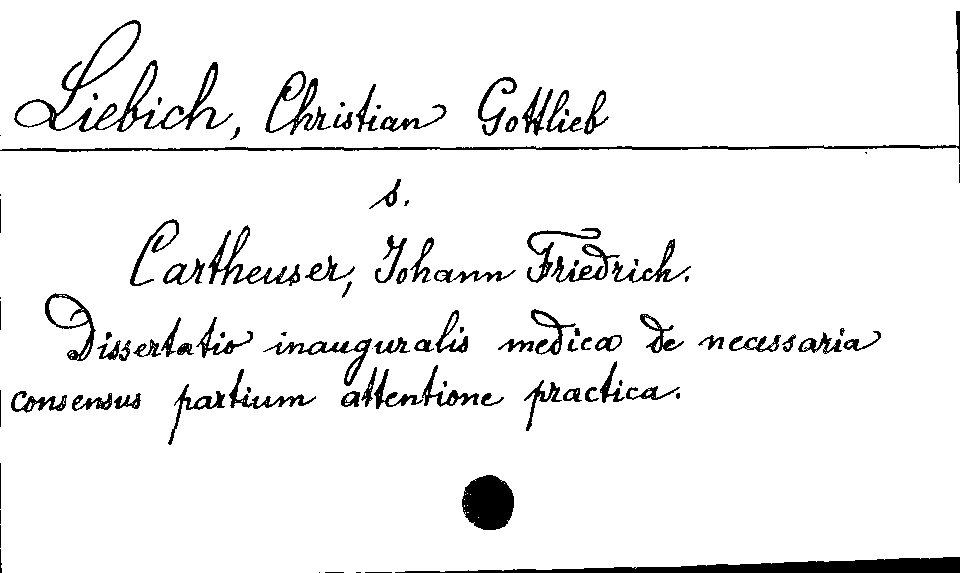 Liebich, Christian Gottlieb
s.
Cartheuser, Johann Friedrich.
Dissertatio inauguralis medica de necessaria
consensus partium attentione practica.